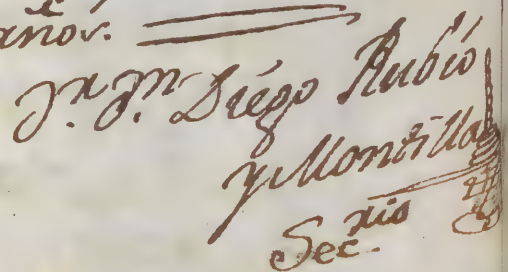 años.
Fr. Jn. Diego Rubio
y Montilla
Sec.rio